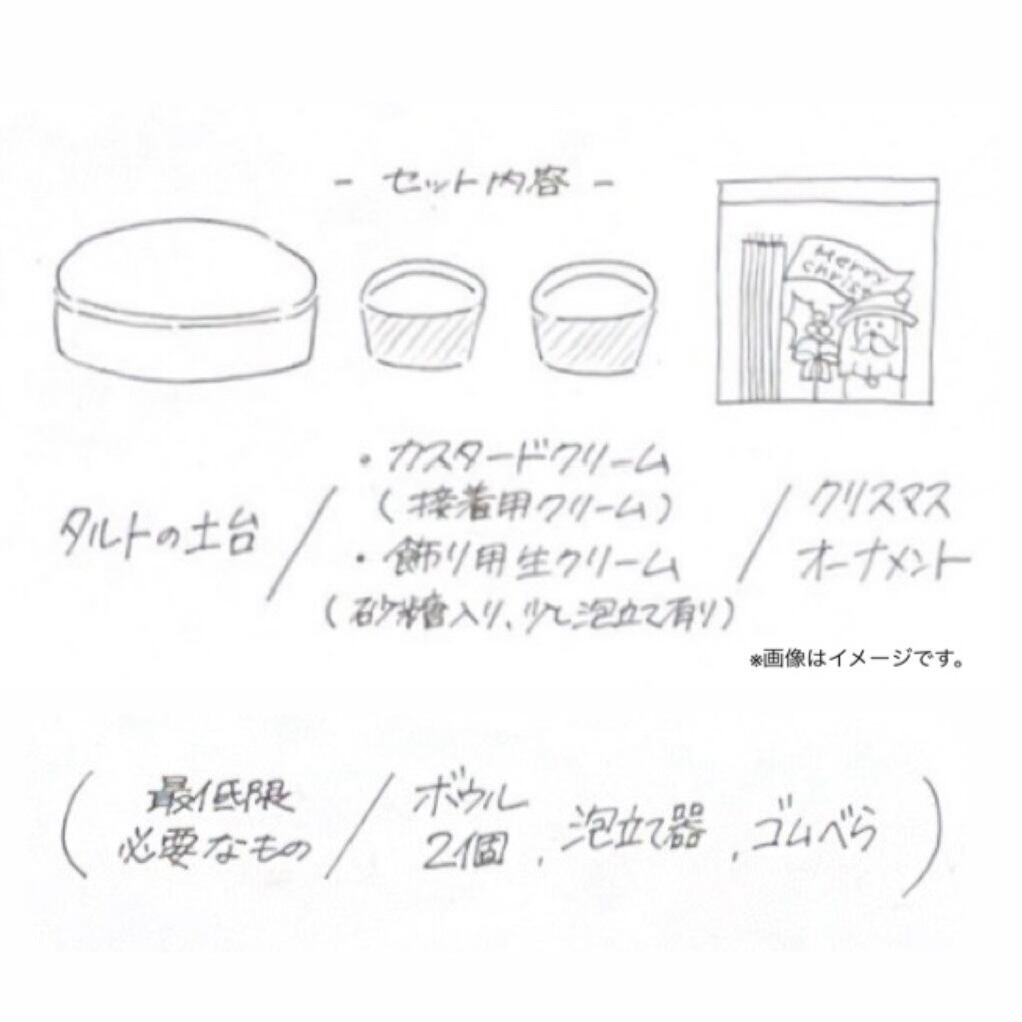 - セット内容 -
Merry
Christ
タルトの土台
・カスタードクリーム
(接着用クリーム)
・飾り用生クリーム
(砂糖入り、少し泡立て有り)
クリスマス
オーナメント
※画像はイメージです。
最低限
必要なもの
ボウル
2個、泡立て器、ゴムべら